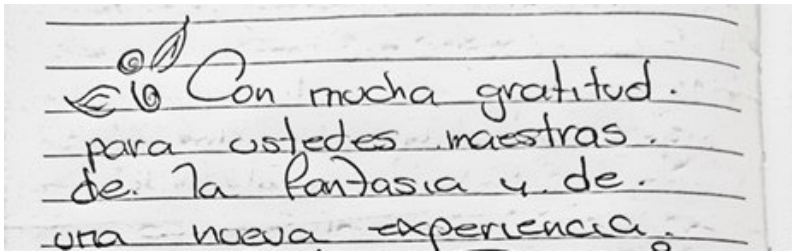 Con mucha gratitud.
para ustedes maestras.
de. la fantasia y de.
una nueva experiencia.